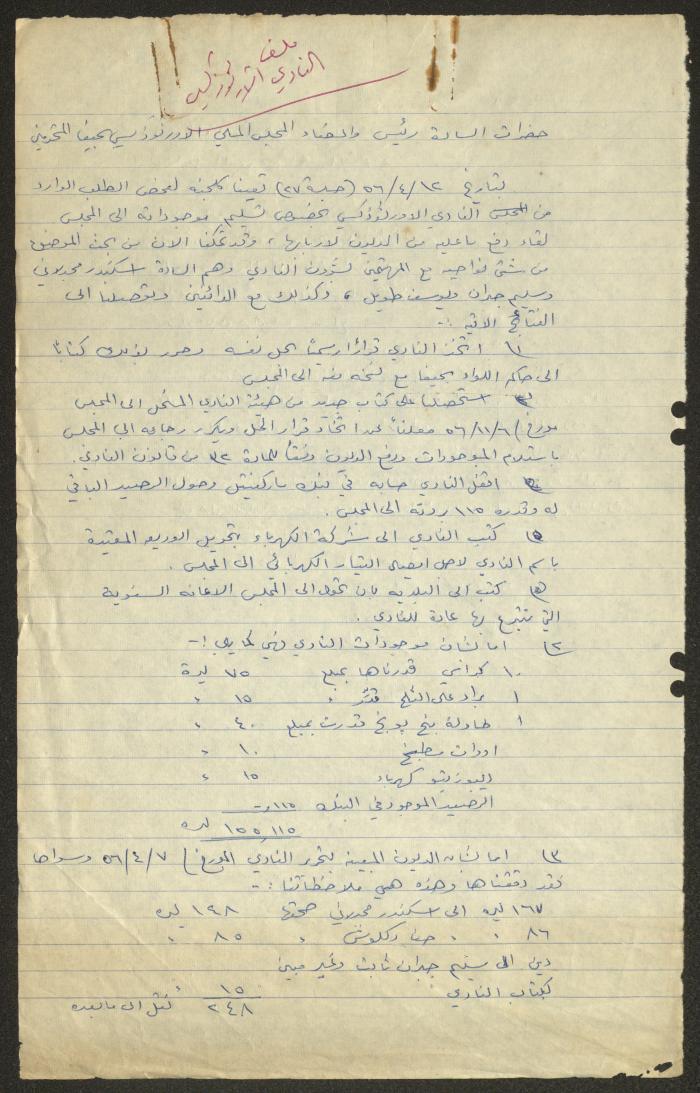 ملف
النادي الارثوذكسي
حضرات السادة رئيس واعضاء المجلس الملي الاورثوذكسي بحيفا المحترمين
بتاريخ ٥٦/٤/١٢ (جلسة ٢٧) تعينا كلجنة لفحص الطلب الوارد
من المجلس النادي الاورثوذكسي بخصوص تسليم موجوداته الى المجلس
لقاء دفع ما عليه من الديون لاربابها ، وقد تمكنا الان من بحث الموضوع
من شتى نواحيه مع المهتمين بشؤون النادي وهم السادة اسكندر مجدلاني
وسليم جبران ويوسف طويل ، وكذلك مع الدائنين وتوصلنا الى
النتائج الاتية :-
١) اتخذ النادي قرارًا رسميًا بحل نفسه وحرر بذلك كتابًا
الى حاكم اللواء بحيفا مع نسخة منه الى المجلس
استحصلنا على كتاب جديد من هيئة النادي المنحل الى المجلس
مؤرخ ٥٦/١١/٦ معلنًا عن اتخاذ قرار الحل ويكرر رجاءه الى المجلس
باستلام الموجودات ودفع الديون وفقًا للمادة ١٢ من قانون النادي.
اقفل النادي حسابه في بنك باركليس وحول الرصيد الباقي
له وقدره ١١٥ روتة الى المجلس .
كتب النادي الى شركة الكهرباء بتحويل الوديعة المقيدة
باسم النادي لاجل ايصال التيار الكهربائي الى المجلس .
كتب الى البلدية بان تحول الى المجلس الاعانة السنوية
التي تتبرع بها عادة للنادي .
٢) اما بشأن موجودات النادي فهي كما يلي :-
١٠ كراسي قدرناها بمبلغ ٧٥ ليرة
١ براد على الثلج قدّر " ١٥ "
١ طاولة بنج بونج قدرت بمبلغ ٤٠ "
ادوات مطبخ ١٠ "
ديبوزيتو كهرباء ١٥ "
الرصيد الموجود في البنك ١١٥و-
١٥٥,١١٥ ليره
٣) اما بشأن الديون المبينة بتحرير النادي المورخ ٥٦/٤/٧ وسواها
فقد دققناها وهذه هي ملاحظاتنا :-
١٦٧ ليره الى اسكندر مجدلاني صحتها ١٤٨ ليره
٨٦ " " حنا دكلوش " ٨٥ "
دين الى سليم جبران ثابت وغير مبين
بكتاب النادي ١٥ "
٢٤٨ نقل الى ما بعده